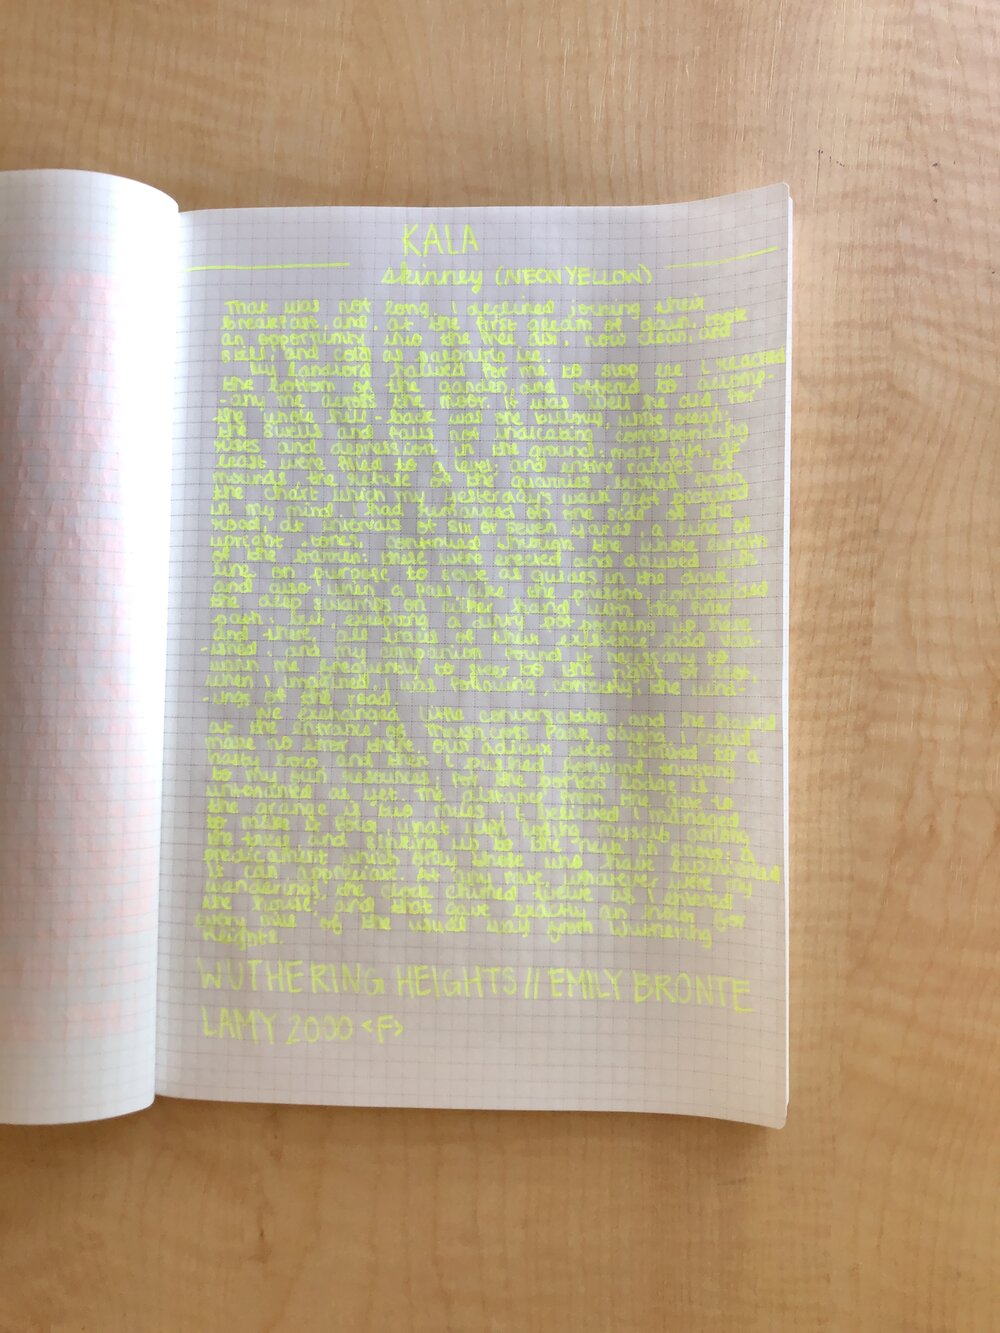 KALA
skinney (NEON YELLOW)
That was not long. I declined joining their
breakfast, and, at the first gleam of dawn, took
an opportunity into the free air, now clear, and
still, and cold as palpable ice.
My landlord halued for me to stop ere I reached
the bottom of the garden, and offered to accomp-
-any me across the moor. It was well he did, for
the whole hill-back was one billowy, white ocean;
the swells and falls not indicating corresponding
rises and depression in the ground: many pits, at
least were filled to a level; and entire ranges of
mounds, the refuse of the quarries, blotted from
the chart which my yesterday's walk left pictured
in my mind. I had remarked on one side of the
road, at intervals of six or seven yards, a line of
upright stones, continued through the whole length
of the barren: these were erected and daubed with
line on purpose to serve as guides in the dark
and also when a fall like the present confounded
the deep swamps on either hand with the firmer
path: but, excepting a dirty dot pointing up here
and there, all traces of their existence had van-
-ished: and my companion found it necessary to
warn me frequently to steer to the right or left,
when I imagined I was following, correctly, the wind-
-ings of the road.
We exchanged little conversation, and he halted
at the entrance of Thrushcross Park, saying, I could
make no error there. Our adieux were limited to a
hasty bow, and then I pushed forward, trusting
to my own resources; for the porter's lodge is
untenanted as yet. The distance from the gate to
the grange is two miles; I believed I managed
to make it four, what with losing myself among
the trees, and sinking up to the neck in snow: a
predicament which only those who have experienced
it can appreciate. At any rate, whatever were my
wanderings, the clock chimed twelve as I entered
the house; and that gave exactly an hour for
every mile of the usual way from Wuthering
Heights.
WUTHERING HEIGHTS // EMILY BRONTE
LAMY 2000 <F>